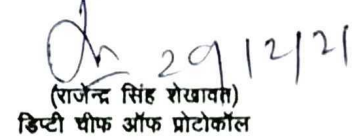 29/2/21
(राजेन्द्र सिंह शेखावत)
डिप्टी चीफ ऑफ प्रोटोकॉल